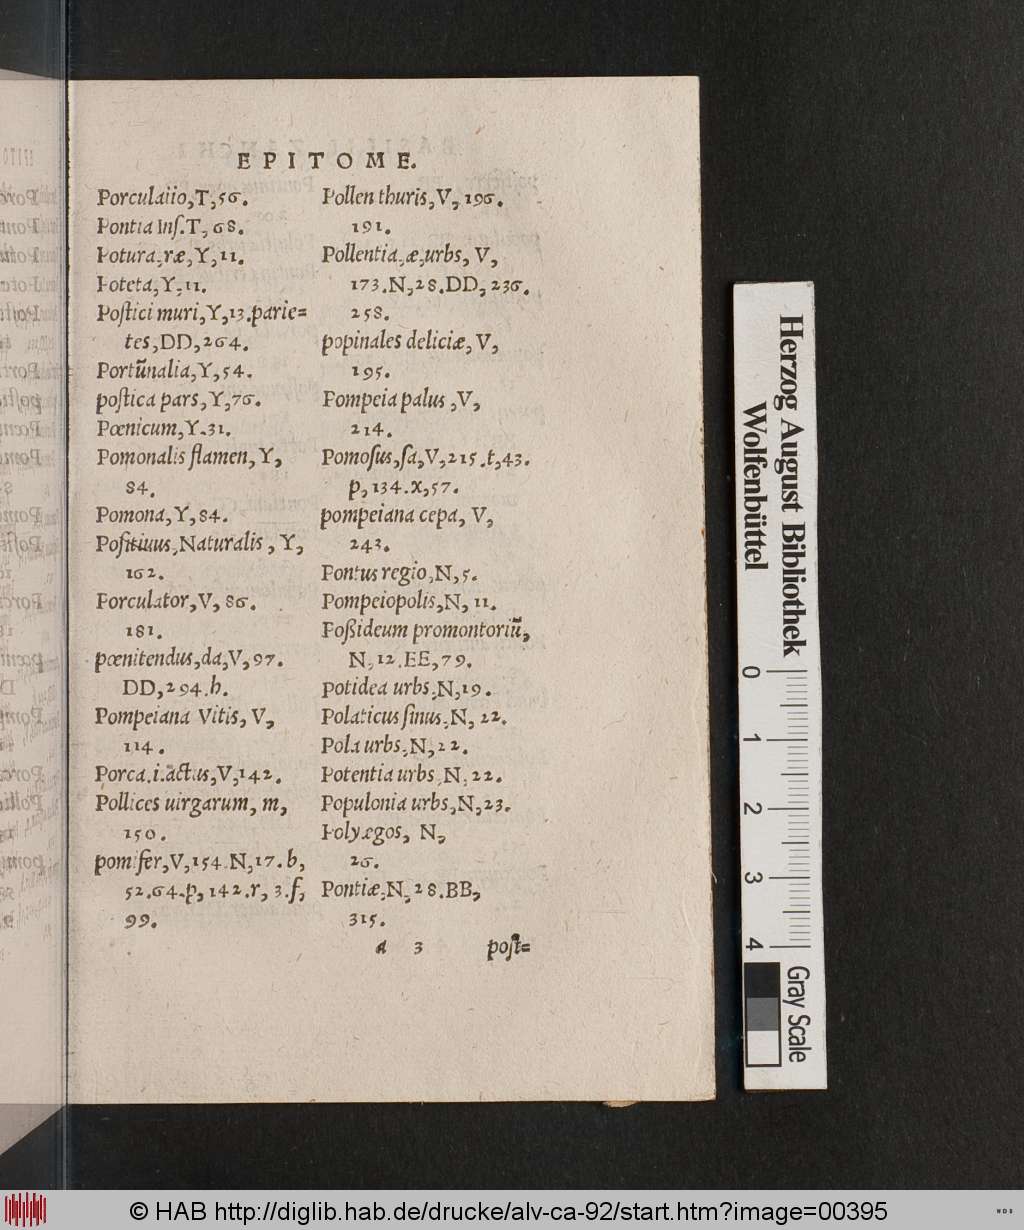 EPITOME.
Porculatio, T, 56.
Pontia Ins. T, 68.
Potura, ræ, Y, 11.
Poteta, Y, 11.
Postici muri, Y, 13. parie=
tes, DD, 264.
Portũnalia, Y, 54.
postica pars, Y, 76.
Pœnicum, Y. 31.
Pomonalis flamen, Y,
84.
Pomona, Y, 84.
Positiuus, Naturalis, Y,
162.
Porculator, V, 86.
181.
pœnitendus, da, V, 97.
DD, 294. h.
Pompeiana Vitis, V,
114.
Porca. i. actus, V, 142.
Pollices uirgarum, m,
150.
pomifer, V, 154. N, 17. b,
52. 64. p, 142. r, 3. f,
99.
Pollen thuris, V, 196.
191.
Pollentia, æ, urbs, V,
173. N, 28. DD, 236.
258.
popinales deliciæ, V,
195.
Pompeia palus, V,
214.
Pomosus, sa, V, 215. t, 43.
p, 134. x, 57.
pompeiana cepa, V,
243.
Pontus regio, N, 5.
Pompeiopolis, N, 11.
Poßideum promontoriũ,
N, 12. EE, 79.
Potidea urbs, N, 19.
Polaticus sinus, N, 22.
Pola urbs, N, 22.
Potentia urbs, N, 22.
Populonia urbs, N, 23.
Polyægos, N,
26.
Pontiæ, N, 28. BB,
315.
a 3 post=
Herzog August Bibliothek
Wolfenbüttel
0 1 2 3 4
Gray Scale
© HAB http://diglib.hab.de/drucke/alv-ca-92/start.htm?image=00395